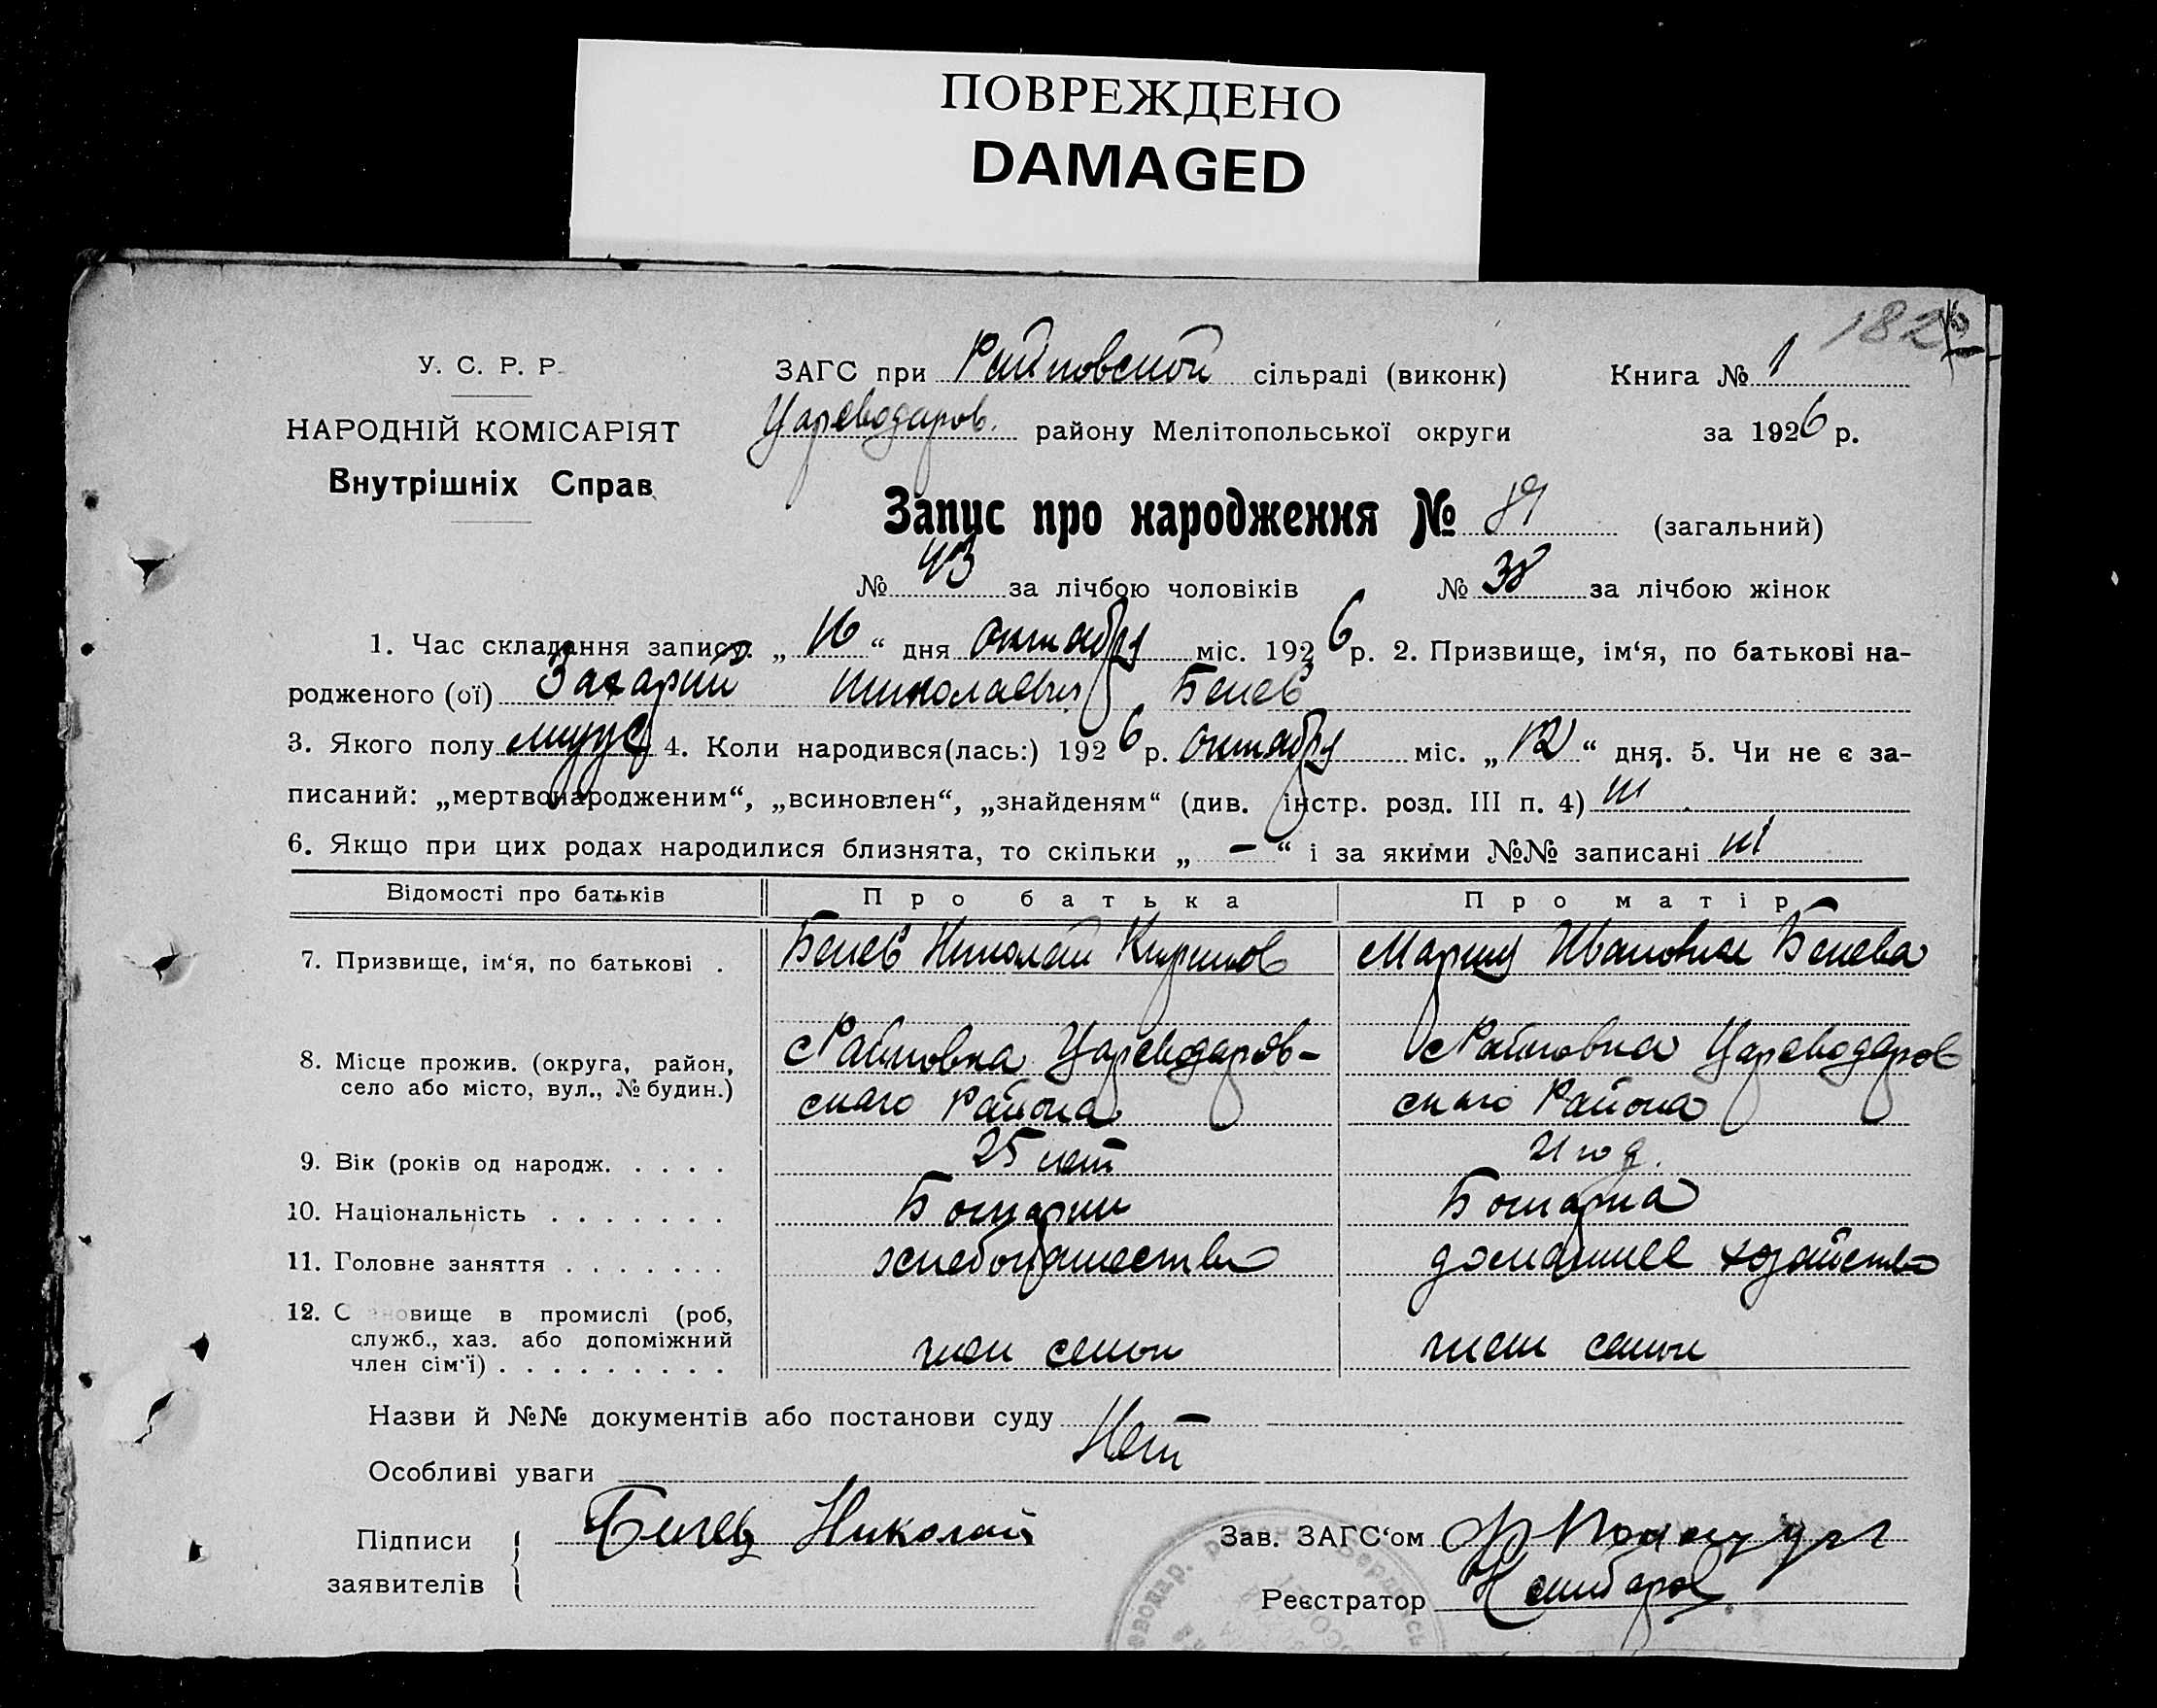 ПОВРЕЖДЕНО
DAMAGED
182
У. С. Р. Р.
НАРОДНІЙ КОМІСАРІЯТ
Внутрішніх Справ
ЗАГС при Райновской сільраді (виконк) Книга № 1
Цареводаров. району Мелітопольської округи за 1926 р.
Запис про народження № (загальний)
№ 43 за лічбою чоловіків № 38 за лічбою жінок
1. Час складання запису: „16“ дня октября міс. 1926 р. 2. Призвище, ім‘я, по батькові на-
родженого (ої) Захарий Николаевич Бенев
3. Якого полу мужс 4. Коли народився(лась:) 1926 р. октября міс. „12“ дня. 5. Чи не є за-
писаний: „мертвонародженим“, „всиновлен“, „знайденям“ (див. інстр. розд. III п. 4) ні
6. Якщо при цих родах народилися близнята, то скільки „ – “ і за якими №№ записані ні
Відомості про батьків Про батька Про матір
7. Призвище, ім‘я, по батькові . Бенев Николай Кирилов Мария Ивановна Бенева
8. Місце прожив. (округа, район, с Райновка Цареводаров- с Райновка Цареводаров
село або місто, вул., № будин.) скаго Района скаго Района
9. Вік (років од народж. . . . . 25 лет 21 год.
10. Національність . . . . . . . Болгарин Болгарка
11. Головне заняття . . . . . . . хлебопашество домашнее хозяйство
12. С новище в промислі (роб,
служб., хаз. або допоміжний член семьи член семьи
член сім‘ї) . . . . . . . . .
Назви й №№ документів або постанови суду Нет
Особливі уваги
Підписи Бенев Николай Зав. ЗАГС‘ом
заявителів Реєстратор